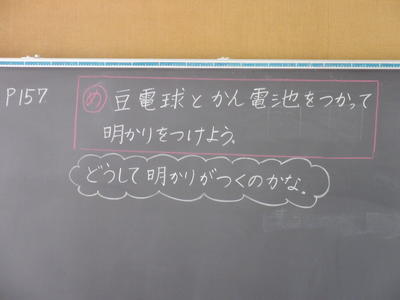 P157
め 豆電球とかん電池をつかって
明かりをつけよう。
どうして明かりがつくのかな。